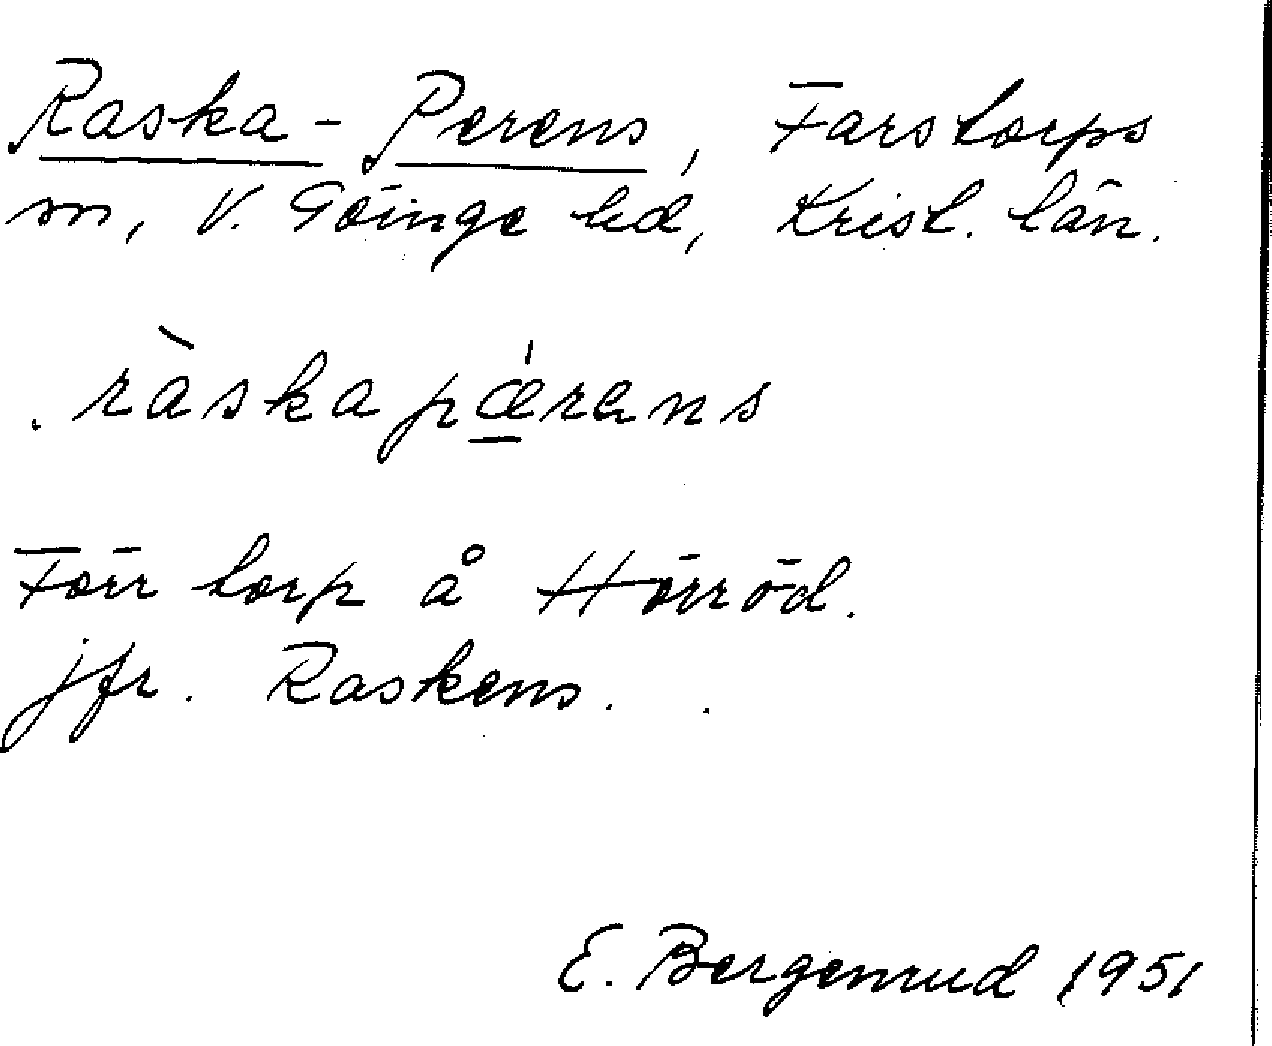 Raska-Perens, Farstorps
sn, V. Göinge hd, Krist. län.
ràskapǽrans
Förr torp å Hörröd.
jfr. Raskens.
E. Bergenrud 1951